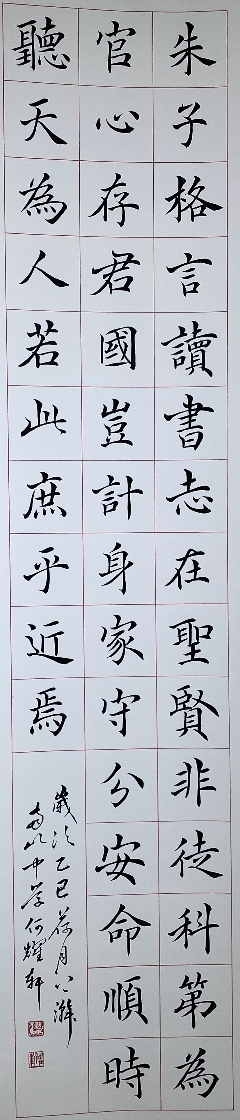 朱子格言讀書志在聖賢非徒科第為
官心存君國豈計身家守分安命順時
聽天為人若此庶乎近焉
歲次乙巳荷月
中學何耀軒